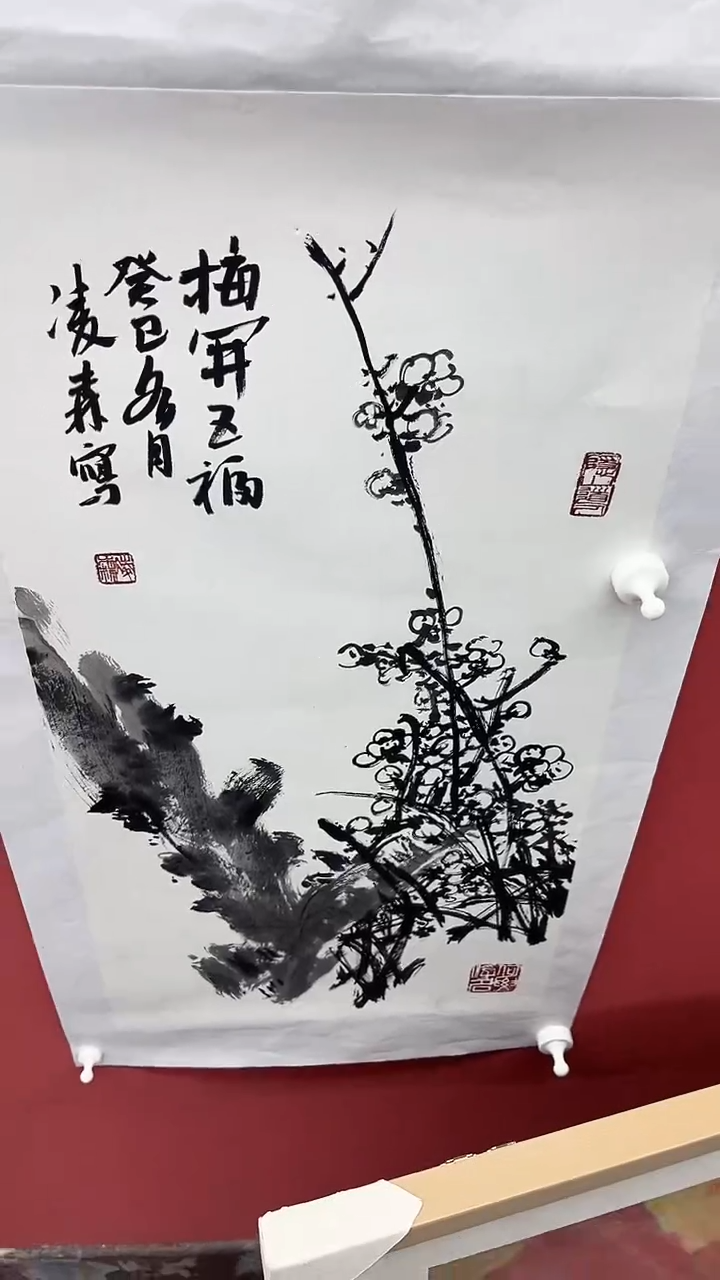 梅開五福
癸巳冬月
凌森寫